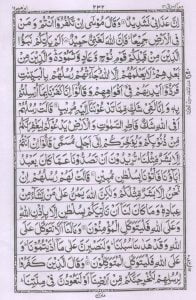 ۲۳۲
اِنَّ عَذَابِيْ لَشَدِيْدٌ وَقَالَ مُوْسٰٓى اِنْ تَكْفُرُوْٓا اَنْتُمْ وَمَنْ
فِي الْاَرْضِ جَمِيْعًا فَاِنَّ اللّٰهَ لَغَنِيٌّ حَمِيْدٌ اَلَمْ يَاْتِكُمْ نَبَؤُا
الَّذِيْنَ مِنْ قَبْلِكُمْ قَوْمِ نُوْحٍ وَّعَادٍ وَّثَمُوْدَ وَالَّذِيْنَ مِنْ
بَعْدِهِمْ لَا يَعْلَمُهُمْ اِلَّا اللّٰهُ جَآءَتْهُمْ رُسُلُهُمْ بِالْبَيِّنٰتِ
فَرَدُّوْٓا اَيْدِيَهُمْ فِيْٓ اَفْوَاهِهِمْ وَقَالُوْٓا اِنَّا كَفَرْنَا بِمَآ اُرْسِلْتُمْ
بِهٖ وَاِنَّا لَفِيْ شَكٍّ مِّمَّا تَدْعُوْنَنَآ اِلَيْهِ مُرِيْبٍ قَالَتْ رُسُلُهُمْ
اَفِي اللّٰهِ شَكٌّ فَاطِرِ السَّمٰوٰتِ وَالْاَرْضِ يَدْعُوْكُمْ لِيَغْفِرَ لَكُمْ
مِّنْ ذُنُوْبِكُمْ وَيُؤَخِّرَكُمْ اِلٰٓى اَجَلٍ مُّسَمًّى قَالُوْٓا اِنْ اَنْتُمْ
اِلَّا بَشَرٌ مِّثْلُنَا تُرِيْدُوْنَ اَنْ تَصُدُّوْنَا عَمَّا كَانَ يَعْبُدُ
اٰبَآؤُنَا فَاْتُوْنَا بِسُلْطٰنٍ مُّبِيْنٍ قَالَتْ لَهُمْ رُسُلُهُمْ اِنْ
نَّحْنُ اِلَّا بَشَرٌ مِّثْلُكُمْ وَلٰكِنَّ اللّٰهَ يَمُنُّ عَلٰى مَنْ يَّشَآءُ مِنْ
عِبَادِهٖ وَمَا كَانَ لَنَآ اَنْ نَّاْتِيَكُمْ بِسُلْطٰنٍ اِلَّا بِاِذْنِ اللّٰهِ
وَعَلَى اللّٰهِ فَلْيَتَوَكَّلِ الْمُؤْمِنُوْنَ وَمَا لَنَآ اَلَّا نَتَوَكَّلَ عَلَى
اللّٰهِ وَقَدْ هَدٰىنَا سُبُلَنَا وَلَنَصْبِرَنَّ عَلٰى مَآ اٰذَيْتُمُوْنَا وَعَلَى
اللّٰهِ فَلْيَتَوَكَّلِ الْمُتَوَكِّلُوْنَ وَقَالَ الَّذِيْنَ كَفَرُوْا
لِرُسُلِهِمْ لَنُخْرِجَنَّكُمْ مِّنْ اَرْضِنَآ اَوْ لَتَعُوْدُنَّ فِيْ مِلَّتِنَا